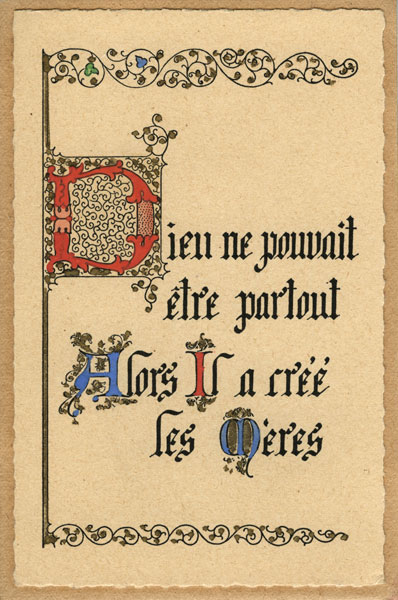 Dieu ne pouvait
être partout
Alors Il a créé
les Mères